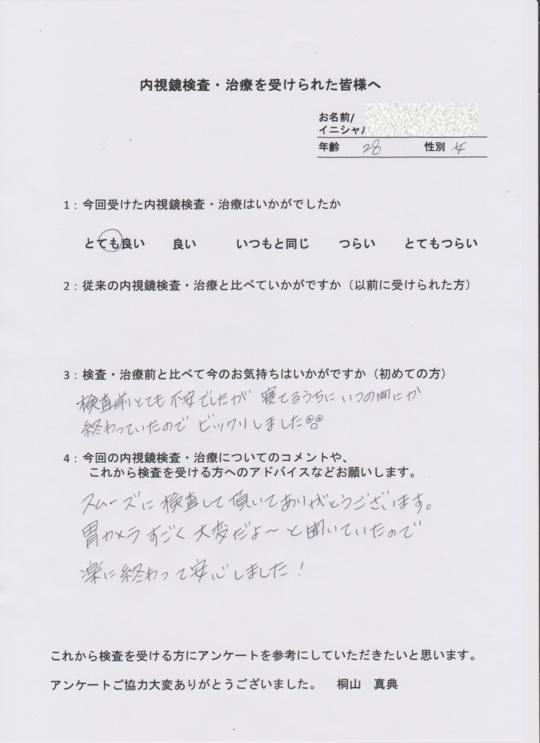 内視鏡検査・治療を受けられた皆様へ
お名前/
イニシャル
年齢 28 性別 女
1：今回受けた内視鏡検査・治療はいかがでしたか
とても良い 良い いつもと同じ つらい とてもつらい
2：従来の内視鏡検査・治療と比べていかがですか（以前に受けられた方）
3：検査・治療前と比べて今のお気持ちはいかがですか（初めての方）
検査前とても不安でしたが 寝てるうちに いつの間にか
終わっていたので ビックリしました
4：今回の内視鏡検査・治療についてのコメントや、
これから検査を受ける方へのアドバイスなどお願いします。
スムーズに検査して頂いてありがとうございます。
胃カメラ すごく 大変だよ～と聞いていたので
楽に終わって安心しました！
これから検査を受ける方にアンケートを参考にしていただきたいと思います。
アンケートご協力大変ありがとうございました。 桐山 真典